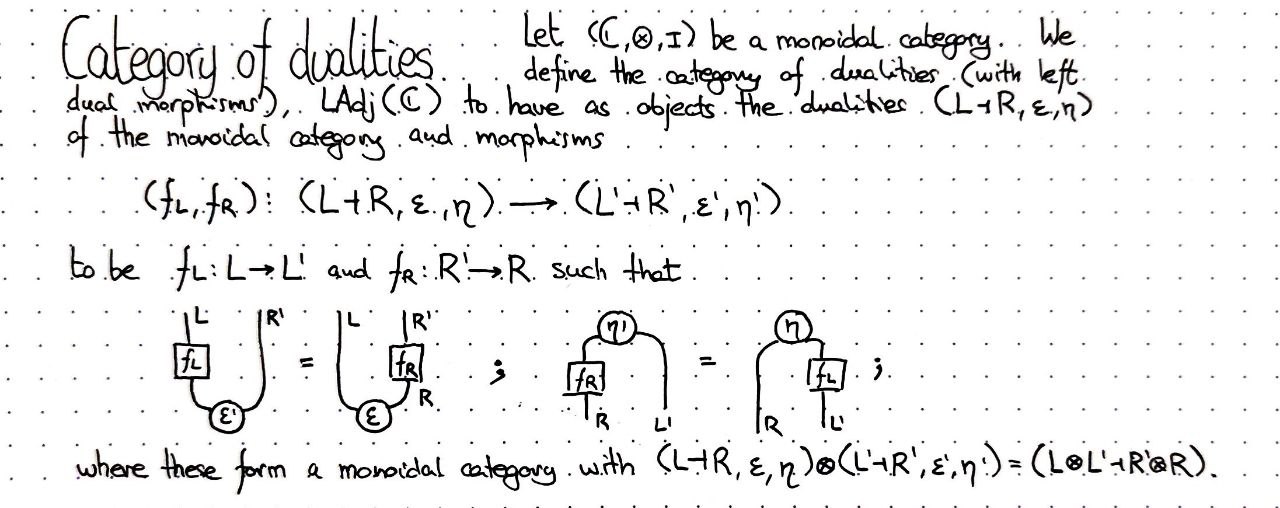 Category of dualities. Let (ℂ,⊗,I) be a monoidal category. We
define the category of dualities (with left
dual morphisms), LAdj(ℂ) to have as objects the dualities (L⊣R, ε, η)
of the monoidal category and morphisms
(fL, fR): (L⊣R, ε, η) → (L'⊣R', ε', η')
to be fL: L→L' and fR: R'→R such that
L R' L R' η' η
fL = fR ; fR = fL ;
ε' ε R R L' R L'
where these form a monoidal category with (L⊣R, ε, η)⊗(L'⊣R', ε', η') = (L⊗L'⊣R'⊗R).